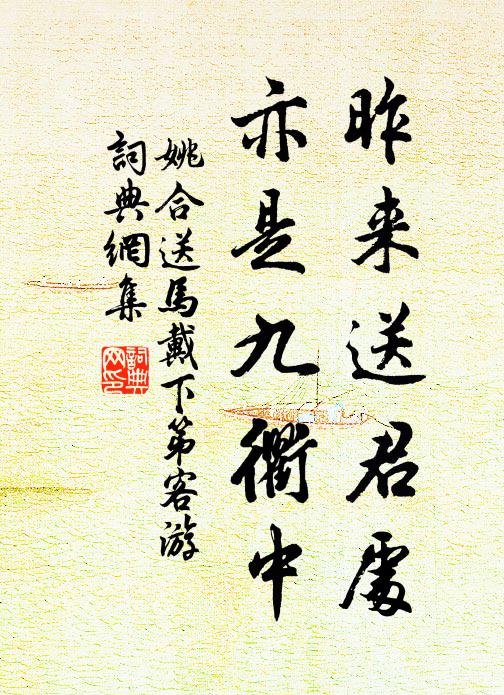 昨来送君處
亦是九衢中
姚合送馬戴下第客游
詞典網集
詞典网印